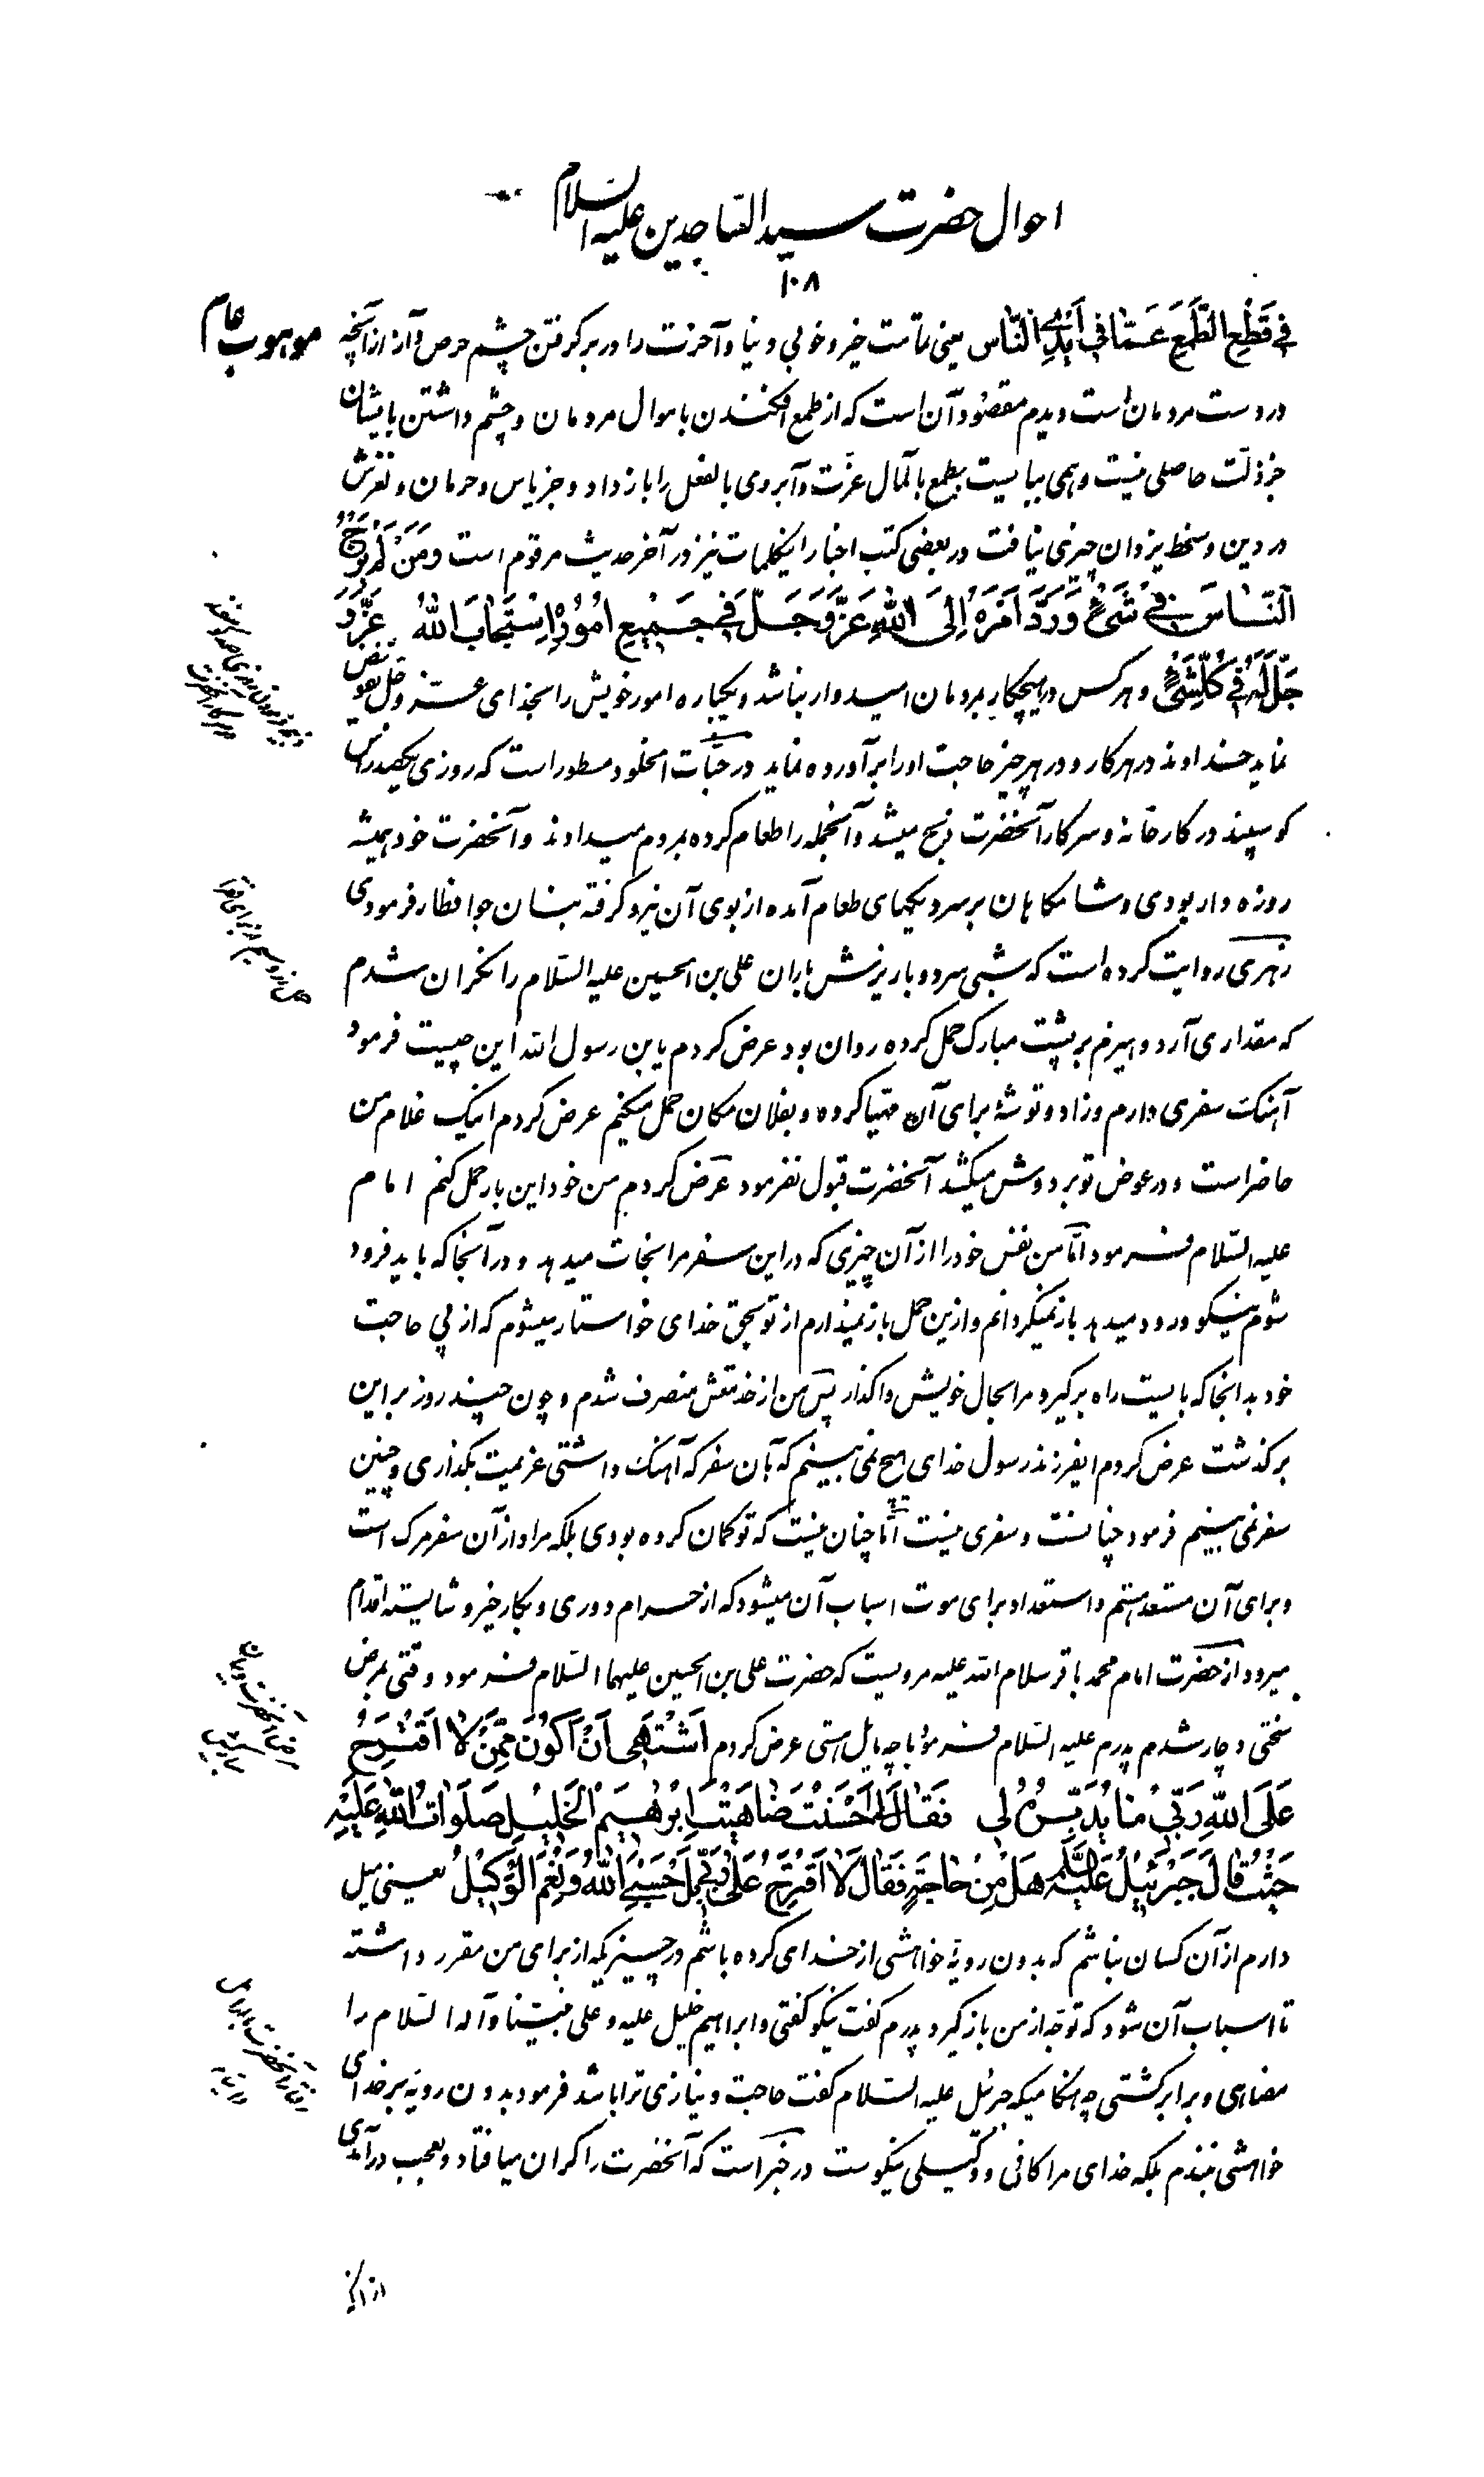 احوال حضرت سید الساجدین علیه السلام
۱۰۸
موهوب عام
فی قَطْعِ الطَّمَعِ عَمّا فی اَیْدِی النّاس یعنی تمامت خیر و خوبی دنیا و آخرت را در بر گرفتن چشم حرص و آز از آنچه
در دست مردمان است دیدم مقصود آن است که از طمع افکندن باموال مردمان و چشم داشتن بایشان
جز ذلت حاصلی نیست و همی ببایست بطمع بالمآل عزّت و آبروی بالفعل را باز داد و جز یاس و حرمان و لغزش
در دین و سخط یزدان چیزی نیافت در بعضی کتب اخبار اینکلمات نیز در آخر حدیث مرقوم است وَ مَنْ لَمْ یَرْجُ
النّاسَ فی شَیْءٍ وَ رَدَّ اَمْرَهُ اِلَی اللهِ عَزَّ وَ جَلَّ فی جَمیعِ اُمُورِهِ اِسْتَجابَ اللهُ عَزَّ وَ
جَلَّ لَهُ فی کُلِّ شَیْءٍ و هر کس در هیچکار بمردمان امیدوار نباشد و یکباره امور خویش را بخدای عز و جل تفویض
نماید خداوند در هر کار و در هر چیز حاجت او را برآورده نماید در جنّات الخلود مسطور است که روزی یکصد راس
گوسپند در کارخانه و سرکار آنحضرت ذبح میشد و آنجمله را طعام کرده بمردم میدادند و آنحضرت خود همیشه
روزه دار بودی و شامگاهان بر سر دیگهای طعام آمده از بوی آن نیرو گرفته بنان جو افطار فرمودی
زهری روایت کرده است که شبی سرد و با ریزش باران علی بن الحسین علیه السلام را نگران شدم
که مقداری آرد و هیزم بر پشت مبارک حمل کرده روان بود عرض کردم یابن رسول الله این چیست فرمود
آهنگ سفری دارم و زاد و توشهٔ برای آن مهیّا کرده و بفلان مکان حمل میکنم عرض کردم اینک غلام من
حاضر است و در عوض تو بر دوش میکشد آنحضرت قبول نفرمود عرض کردم من خود این بار حمل کنم امام
علیه السّلام فرمود امّا من نفس خود را از آن چیزی که در این سفر مرا نجات میدهد و در آنجا که باید فرود
شوم نیکو ورود میدهد باز نمیگردانم و ازین حمل باز نمیدارم از تو بحق خدای خواستار میشوم که از پی حاجت
خود بدانجا که بایست راه برگیر و مرا بحال خویش واگذار پس من از خدمتش منصرف شدم و چون چند روز بر این
برگذشت عرض کردم ایفرزند رسول خدای هیچ نمی بینم که بآن سفر که آهنگ داشتی عزیمت بگذاری و چنین
سفر نمی بینم فرمود چنانست و سفری نیست امّا چنان نیست که تو گمان کرده بودی بلکه مراد از آن سفر مرگ است
و برای آن مستعد هستم و استعداد برای موت اسباب آن میشود که از حرام دوری و بکار خیر و شایسته اقدام
میرود از حضرت امام محمد باقر سلام الله علیه مرویست که حضرت علی بن الحسین علیهما السّلام فرمود وقتی بمرض
سختی دچار شدم پدرم علیه السّلام فرمود با چه مایل استی عرض کردم اَشْتَهی اَنْ اَکُونَ مِمَّنْ لا اَقْتَرِحُ
عَلَی اللهِ رَبّی ما یُدَبِّرُهُ لی فَقالَ لی اَحْسَنْتَ ضاهَیْتَ اِبْرهیمَ الْخَلیلِ صَلَواتُ اللهِ عَلَیْهِ
حَیْثُ قالَ جَبْرَئیلُ عَلَیْهِ السَّلم هَلْ مِنْ حاجَةٍ فَقالَ لا اَقْتَرِحُ عَلی رَبّی بَلْ حَسْبِیَ اللهُ وَ نِعْمَ الْوَکیلُ یعنی میل
دارم از آن کسان نباشم که بدون رویهٔ خواهشی از خدای کرده باشم در چیزیکه از برای من مقرر داشته
تا اسباب آن شود که توجّه از من باز گیرد پدرم گفت نیکو گفتی و ابراهیم خلیل علیه و علی نبیّنا و آله السّلام را
مضاهی و برابر گشتی چه هنگامیکه جبرئیل علیه السّلام گفت حاجت و نیازی ترا باشد فرمود بدون رویه بر خدای
خواهشی نبندم بلکه خدای مرا کافی و وکیلی نیکوست در خبر است که آنحضرت را گران میافتاد و بعجب در آمدی